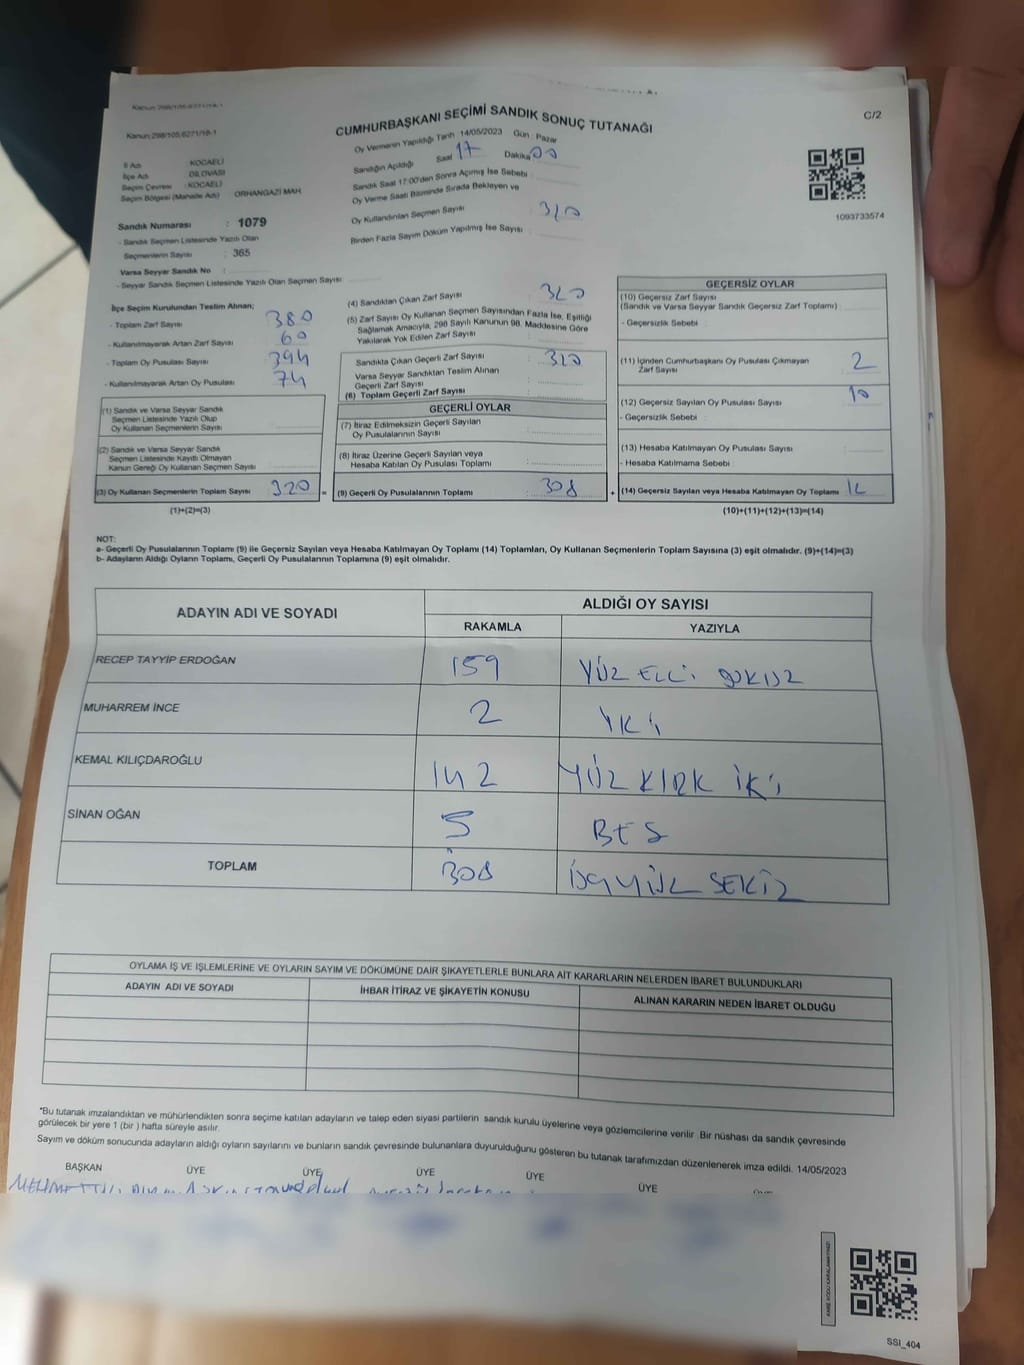 Kanun:298/105,6271/18-1
C/2
CUMHURBAŞKANI SEÇİMİ SANDIK SONUÇ TUTANAĞI
Kanun:298/105,6271/18-1
Oy Vermenin Yapıldığı Tarih :14/05/2023 Gün : Pazar
İl Adı : KOCAELİ
İlçe Adı : DİLOVASI
Seçim Çevresi : KOCAELİ
Seçim Bölgesi (Mahalle Adı) : ORHANGAZİ MAH.
Sandığın Açıldığı Saat 17 Dakika 00
Sandık Saat 17:00'den Sonra Açılmış İse Sebebi :
Oy Verme Saati Bitiminde Sırada Bekleyen ve
Oy Kullandırılan Seçmen Sayısı : 320
Birden Fazla Sayım Döküm Yapılmış İse Sayısı :
1093733574
Sandık Numarası : 1079
- Sandık Seçmen Listesinde Yazılı Olan
Seçmenlerin Sayısı : 365
Varsa Seyyar Sandık No :
- Seyyar Sandık Seçmen Listesinde Yazılı Olan Seçmen Sayısı :
İlçe Seçim Kurulundan Teslim Alınan;
- Toplam Zarf Sayısı : 380
- Kullanılmayarak Artan Zarf Sayısı : 60
- Toplam Oy Pusulası Sayısı : 394
- Kullanılmayarak Artan Oy Pusulası : 74
(1) Sandık ve Varsa Seyyar Sandık
Seçmen Listesinde Yazılı Olup
Oy Kullanan Seçmenlerin Sayısı :
(2) Sandık ve Varsa Seyyar Sandık
Seçmen Listesinde Kayıtlı Olmayan
Kanun Gereği Oy Kullanan Seçmen Sayısı :
(3) Oy Kullanan Seçmenlerin Toplam Sayısı : 320
(1)+(2)=(3)
(4) Sandıktan Çıkan Zarf Sayısı : 320
(5) Zarf Sayısı Oy Kullanan Seçmen Sayısından Fazla İse, Eşitliği
Sağlamak Amacıyla, 298 Sayılı Kanunun 98. Maddesine Göre
Yakılarak Yok Edilen Zarf Sayısı :
Sandıkta Çıkan Geçerli Zarf Sayısı : 320
Varsa Seyyar Sandıktan Teslim Alınan
Geçerli Zarf Sayısı :
(6) Toplam Geçerli Zarf Sayısı :
GEÇERLİ OYLAR
(7) İtiraz Edilmeksizin Geçerli Sayılan
Oy Pusulalarının Sayısı :
(8) İtiraz Üzerine Geçerli Sayılan veya
Hesaba Katılan Oy Pusulası Toplamı :
= (9) Geçerli Oy Pusulalarının Toplamı : 308 +
GEÇERSİZ OYLAR
(10) Geçersiz Zarf Sayısı
(Sandık ve Varsa Seyyar Sandık Geçersiz Zarf Toplamı) :
- Geçersizlik Sebebi :
(11) İçinden Cumhurbaşkanı Oy Pusulası Çıkmayan
Zarf Sayısı : 2
(12) Geçersiz Sayılan Oy Pusulası Sayısı : 10
- Geçersizlik Sebebi :
(13) Hesaba Katılmayan Oy Pusulası Sayısı :
- Hesaba Katılmama Sebebi :
(14) Geçersiz Sayılan veya Hesaba Katılmayan Oy Toplamı : 12
(10)+(11)+(12)+(13)=(14)
NOT:
a- Geçerli Oy Pusulalarının Toplamı (9) ile Geçersiz Sayılan veya Hesaba Katılmayan Oy Toplamı (14) Toplamları, Oy Kullanan Seçmenlerin Toplam Sayısına (3) eşit olmalıdır. (9)+(14)=(3)
b- Adayların Aldığı Oyların Toplamı, Geçerli Oy Pusulalarının Toplamına (9) eşit olmalıdır.
ADAYIN ADI VE SOYADI ALDIĞI OY SAYISI
RAKAMLA YAZIYLA
RECEP TAYYİP ERDOĞAN 159 YÜZ ELLİ DOKUZ
MUHARREM İNCE 2 İKİ
KEMAL KILIÇDAROĞLU 142 YÜZ KIRK İKİ
SİNAN OĞAN 5 BEŞ
TOPLAM 308 ÜÇYÜZ SEKİZ
OYLAMA İŞ VE İŞLEMLERİNE VE OYLARIN SAYIM VE DÖKÜMÜNE DAİR ŞİKAYETLERLE BUNLARA AİT KARARLARIN NELERDEN İBARET BULUNDUKLARI
ADAYIN ADI VE SOYADI İHBAR İTİRAZ VE ŞİKAYETİN KONUSU ALINAN KARARIN NEDEN İBARET OLDUĞU
*Bu tutanak imzalandıktan ve mühürlendikten sonra seçime katılan adayların ve talep eden siyasi partilerin sandık kurulu üyelerine veya gözlemcilerine verilir. Bir nüshası da sandık çevresinde
görülecek bir yere 1 (bir ) hafta süreyle asılır.
Sayım ve döküm sonucunda adayların aldığı oyların sayılarını ve bunların sandık çevresinde bulunanlara duyurulduğunu gösteren bu tutanak tarafımızdan düzenlenerek imza edildi. 14/05/2023
BAŞKAN ÜYE ÜYE ÜYE ÜYE ÜYE
SSI_404